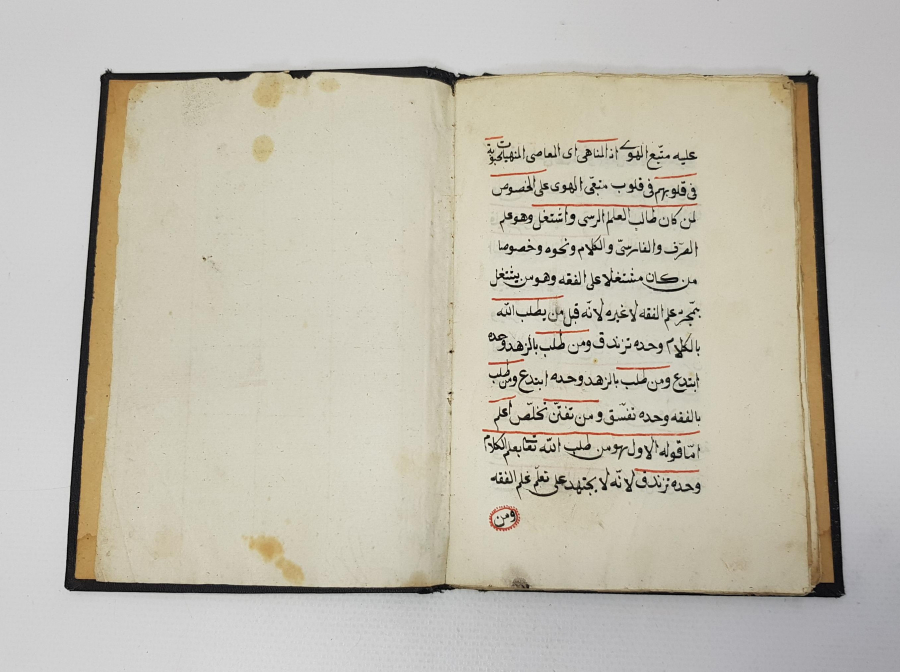 عليه متبع الهوى اذ المناهى اى المعاصى المنهيات محبوبة
فى قلوبهم فى قلوب متبعى الهوى على الخصوص
لمن كان طالب العلم الرسمى واشتغل وهو علم
الصرف والفارسى والكلام ونحوه وخصوصا
من كان مشتغلا على الفقه وهو من يشتغل
بمجرد علم الفقه لا غيره لانه قيل من يطلب الله
بالكلام وحده تزندق ومن طلب بالزهد وحده
ابتدع ومن طلب بالزهد وحده ابتدع ومن طلب
بالفقه وحده تفسق ومن تفنن تخلص اعلم
اما قوله الاول فهو من طلب الله تعا بعلم الكلام
وحده تزندق لانه لا يجتهد على تعلم علم الفقه
ومن